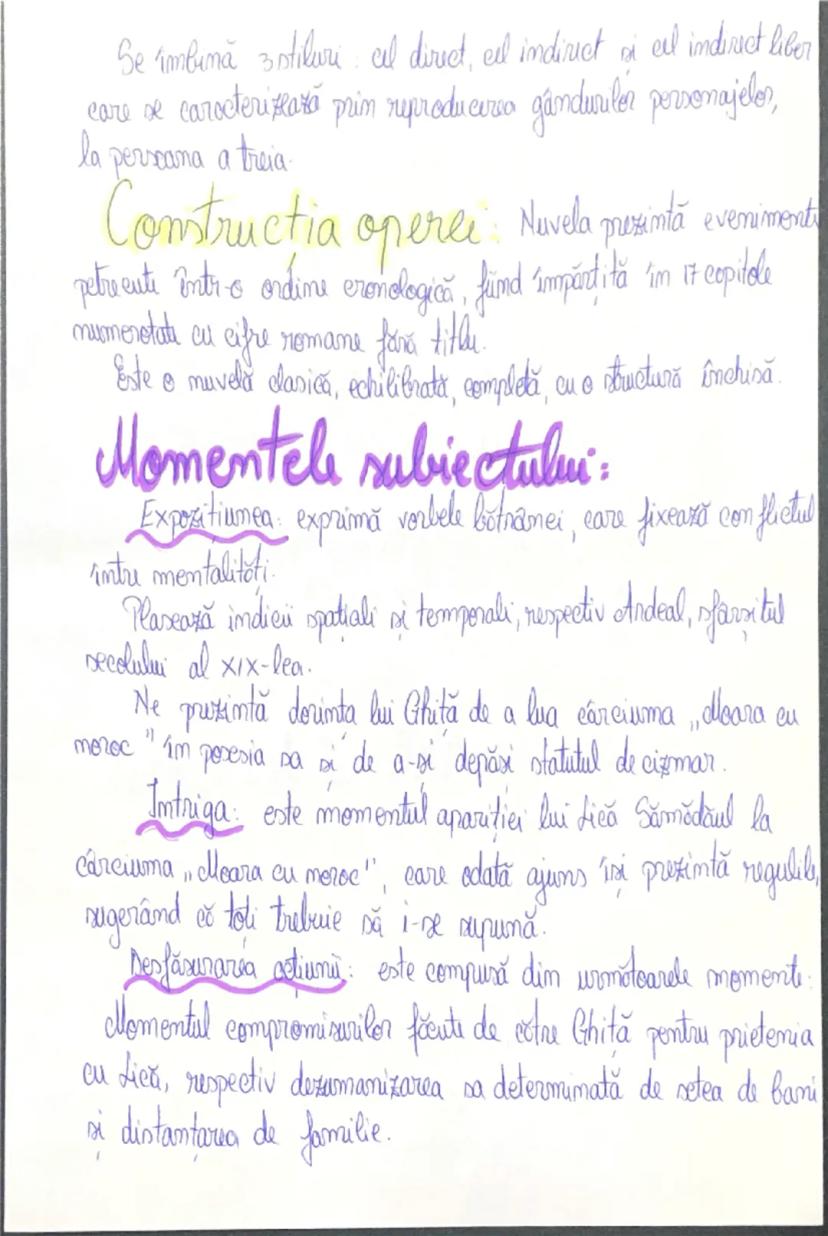 Se îmbină 3 stiluri: cel direct, cel indirect și cel indirect liber
care se caracterizează prin reproducerea gândurilor personajelor,
la persoana a treia.
Construcția operei: Nuvela prezintă evenimente
petrecute într-o ordine cronologică, fiind împărțită în 17 capitole
numerotate cu cifre romane fără titlu.
Este o nuvelă clasică, echilibrată, completă, cu o structură închisă.
Momentele subiectului:
Expozițiunea: exprimă vorbele bătrânei, care fixează conflictul
între mentalități.
Plasează indicii spațiali și temporali, respectiv Ardeal, sfârșitul
secolului al XIX-lea.
Ne prezintă dorința lui Ghiță de a lua cârciuma „Moara cu
noroc" în posesia sa și de a-și depăși statutul de cizmar.
Intriga: este momentul apariției lui Lică Sămădăul la
cârciuma „Moara cu noroc", care odată ajuns își prezintă regulile,
sugerând că toți trebuie să i-se supună.
Desfășurarea acțiunii: este compusă din următoarele momente:
Momentul compromisurilor făcute de către Ghiță pentru prietenia
cu Lică, respectiv dezumanizarea sa determinată de setea de bani
și distanțarea de familie.